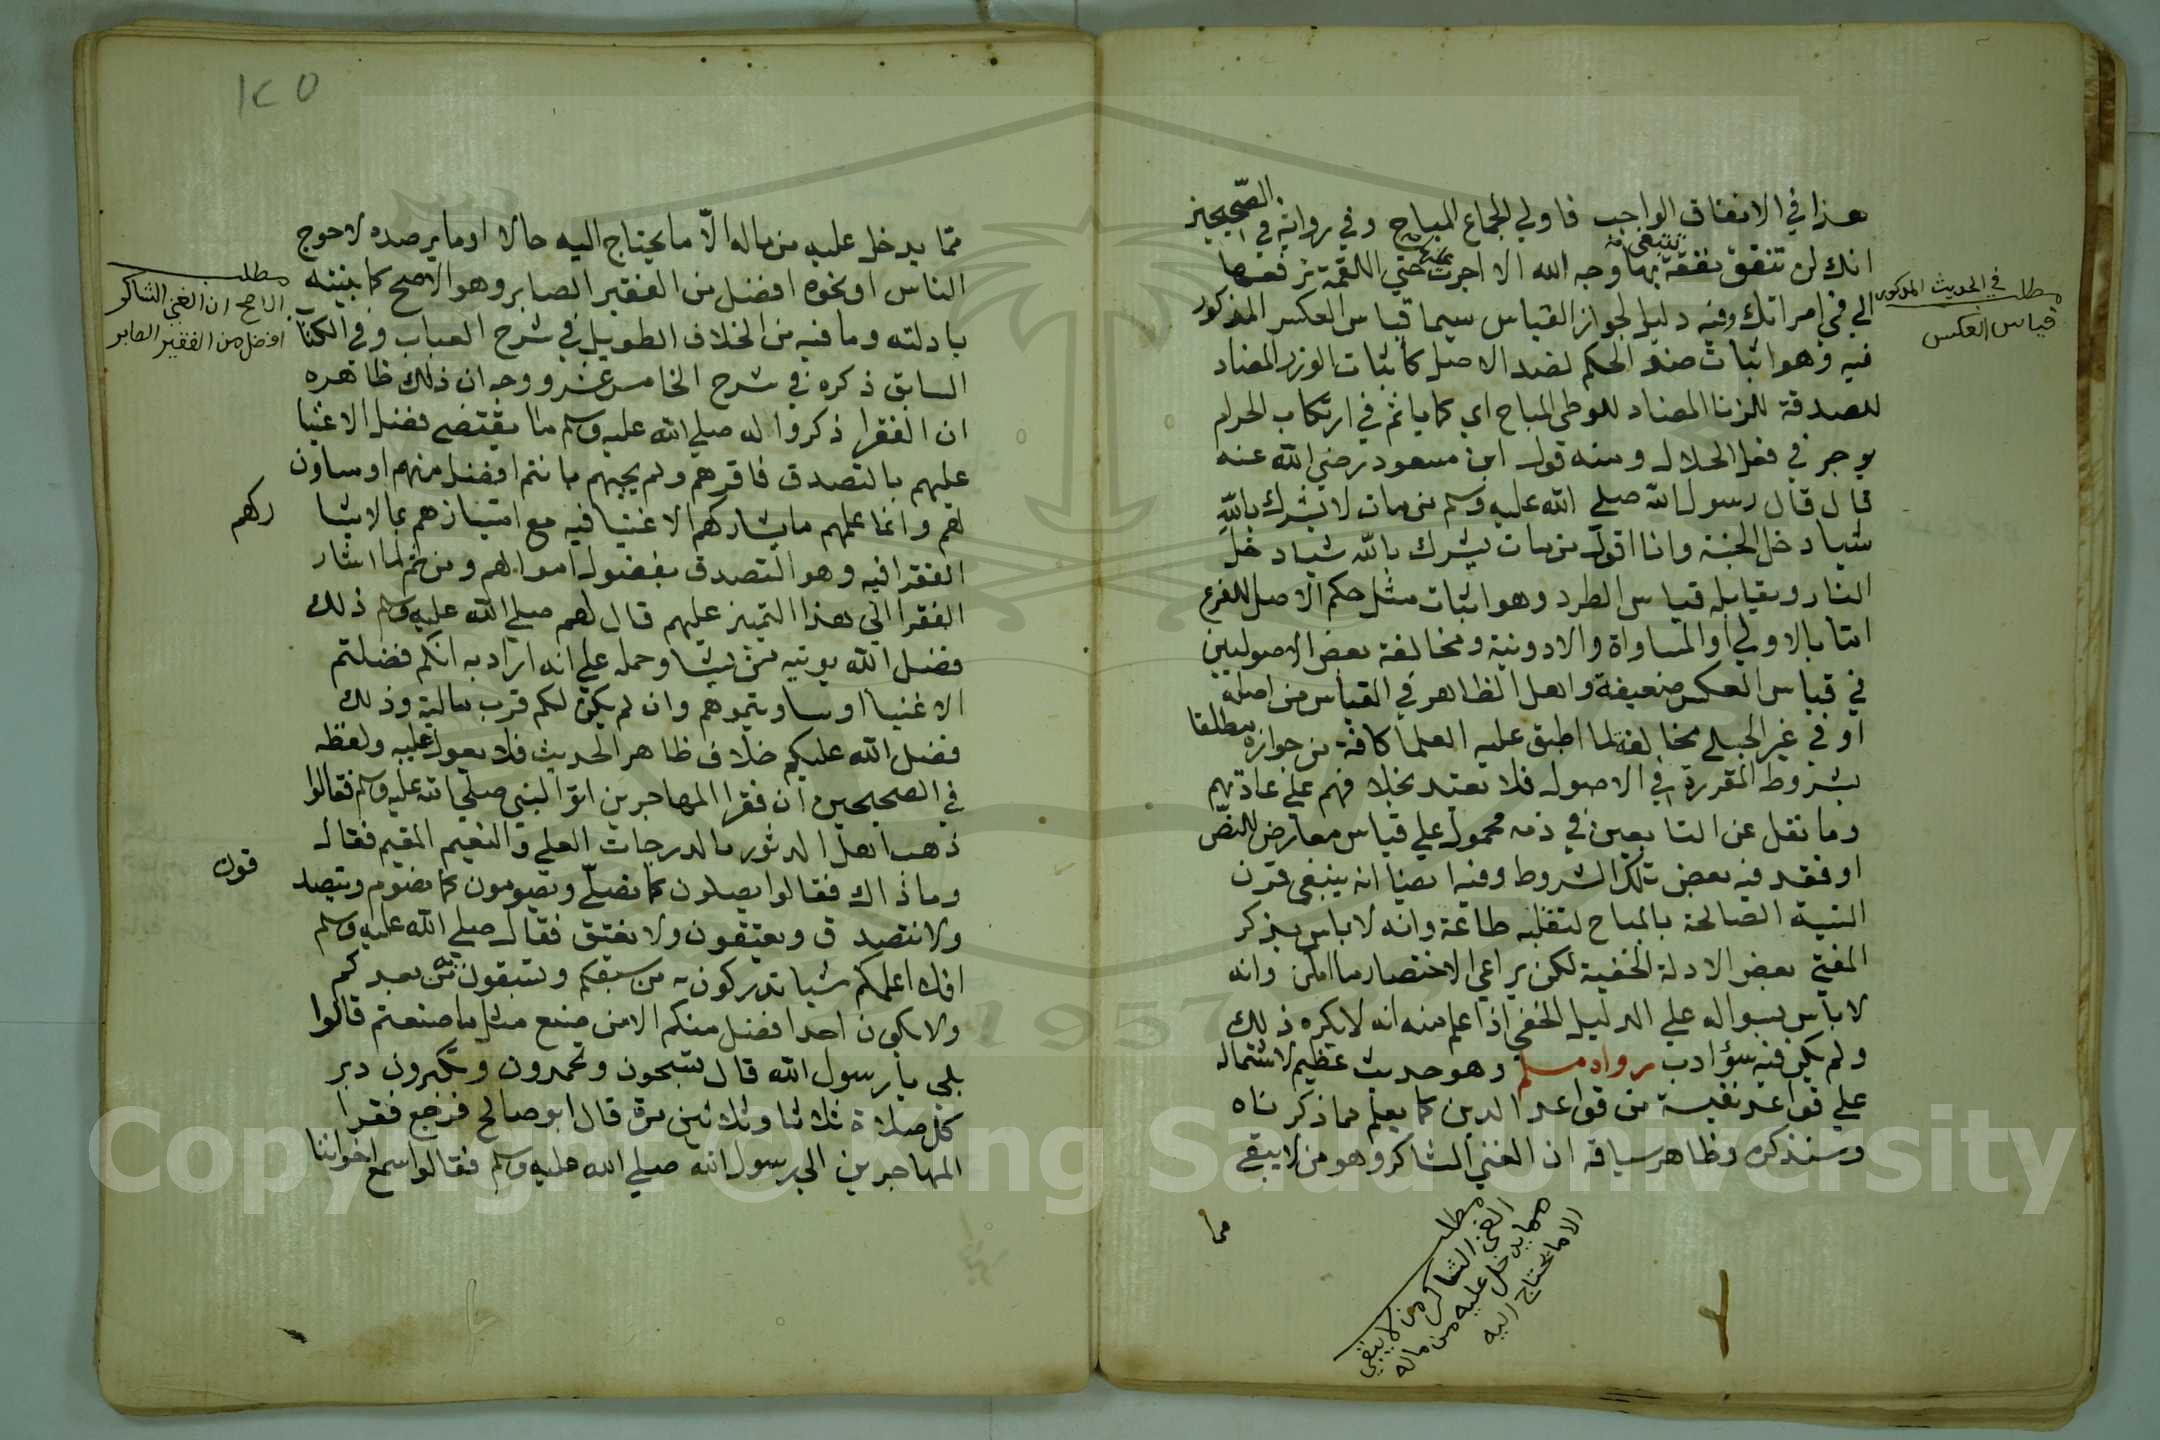 هذا في الانفاق الواجب فاولي الجماع المباح وفي رواية في الصحيحين
انك لن تنفق نفقة تبتغي بها وجه الله الا اجرت بها حتي اللقمة ترفعها
الي في امراتك وفيه دليل لجواز القياس سيما قياس العكس المذكور
فيه وهو اثبات ضد الحكم لضد الاصل كاثبات الوزر المضاد
للصدقة للزنا المضاد للوطي المباح اي كما ياثم في ارتكاب الحرام
يوجر في فعل الحلال ومنه قول ابن مسعود رضي الله عنه
قال قال رسول الله صلي الله عليه وسلم من مات لا يشرك بالله
شيا دخل الجنة وانا اقول من مات يشرك بالله شيا دخل
النار ويقابله قياس الطرد وهو اثبات مثل حكم الاصل للفرع
اما بالاولي او المساواة والادونية ومخالفة بعض الاصوليين
في قياس العكس ضعيفة واهل الظاهر في القياس من اصله
او في غير الجلي مخالفة لما اطبق عليه العلما كافة من جوازه مطلقا
بشروط المقررة في الاصول فلا يعتد بخلافهم علي عادتهم
وما نقل عن التابعين في ذمه محمول علي قياس معارض للنص
او فقد فيه بعض تلك الشروط وفيه ايضا انه ينبغي قرن
النية الصالحة بالمباح لتقلبه طاعة وانه لا باس بذكر
المفتي بعض الادلة الخفية لكن يراعي الاختصار ما امكن وانه
لا باس بسواله علي الدليل الخفي اذا علم منه انه لا يكره ذلك
ولم يكن فيه سؤ ادب رواه مسلم وهو حديث عظيم لاشتماله
علي قواعد نفيسة من قواعد الدين كما يعلم مما ذكرناه
وسنذكره وظاهر سياقه ان الغني الشاكر وهو من لا يبقي
مما
مطلب في الحديث المذكور
قياس العكس
مطلب
الغني الشاكر من لا يبقي
مما يدخل عليه من ماله
الا ما يحتاج اليه
١٢٥
مما يدخل عليه من ماله الا ما يحتاج اليه حالا او ما يرصده لاحوج
الناس او نحوه افضل من الفقير الصابر وهو الاصح كما بينته
بادلته وما فيه من الخلاف الطويل في شرح العباب وفي الكتاب
السابق ذكره في شرح الخامس عشر ووجه ان ذلك ظاهره
ان الفقرا ذكروا له صلي الله عليه وسلم ما يقتضي فضل الاغنيا
عليهم بالتصدق فاقرهم ولم يجبهم بانتم افضل منهم او مساوون
لهم وانما علمهم ما يشاركهم الاغنيا فيه مع امتيازهم بما لا يشا
ركهم
الفقرا فيه وهو التصدق بفضول اموالهم ومن ثم لما اشار
الفقرا الي هذا التميز عليهم قال لهم صلي الله عليه وسلم ذلك
فضل الله يوتيه من يشا وحمله علي انه اراد به انكم فضلتم
الاغنيا او ساويتموهم وان لم يكن لكم قرب مالية وذلك
فضل الله عليكم خلاف ظاهر الحديث فلا يعول عليه ولفظه
في الصحيحين ان فقرا المهاجرين اتوا النبي صلي الله عليه وسلم فقالوا
ذهب اهل الدثور بالدرجات العلي والنعيم المقيم فقال
وما ذاك فقالوا يصلون كما نصلي ويصومون كما نصوم ويتصد
قون
ولا نتصدق ويعتقون ولا نعتق فقال صلي الله عليه وسلم
افلا اعلمكم شيا تدركون به من سبقكم وتسبقون به من بعدكم
ولا يكون احد افضل منكم الا من صنع مثل ما صنعتم قالوا
بلي يا رسول الله قال تسبحون وتحمدون وتكبرون دبر
كل صلاة ثلاثا وثلاثين مرة قال ابو صالح فرجع فقرا
المهاجرين الي رسول الله صلي الله عليه وسلم فقالوا سمع اخواننا
مطلب
الاصح ان الغني الشاكر
افضل من الفقير الصابر
1957
Copyright © King Saud University